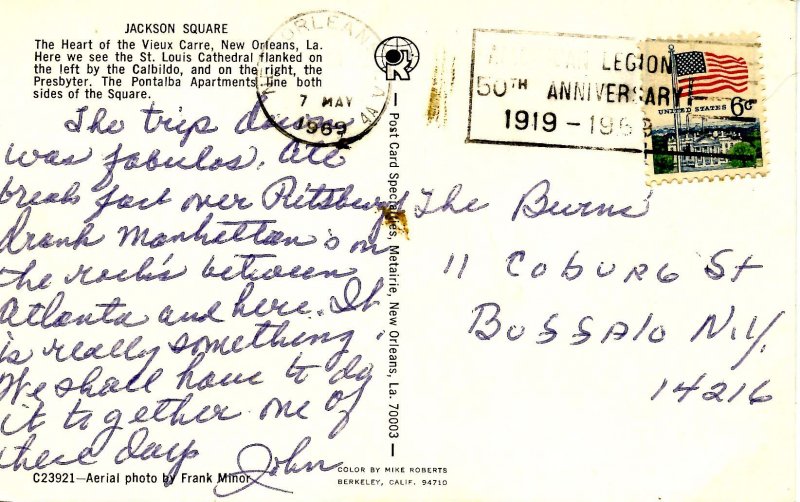 JACKSON SQUARE
The Heart of the Vieux Carre, New Orleans, La.
Here we see the St. Louis Cathedral flanked on
the left by the Calbildo, and on the right, the
Presbyter. The Pontalba Apartments line both
sides of the Square.
The trip down
was fabulos. Ate
breakfast over Pittsburg
drank Manhattan's on
the rock's between
Atlanta and here. It
is really something.
We shall have to do
it together one of
these days
John
C23921—Aerial photo by Frank Minor
COLOR BY MIKE ROBERTS
BERKELEY, CALIF. 94710
— Post Card Specialties, Metairie, New Orleans, La. 70003 —
7 MAY
1969
LEGION
50TH ANNIVERSARY
1919 - 1968
UNITED STATES 6c
The Burns'
11 COBURG St
BUSSALO N.Y.
14216